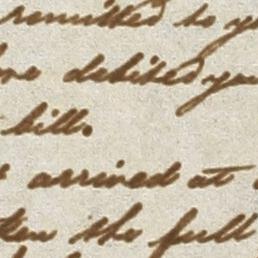 remitted to
debited you
bill.
arrived at
the full